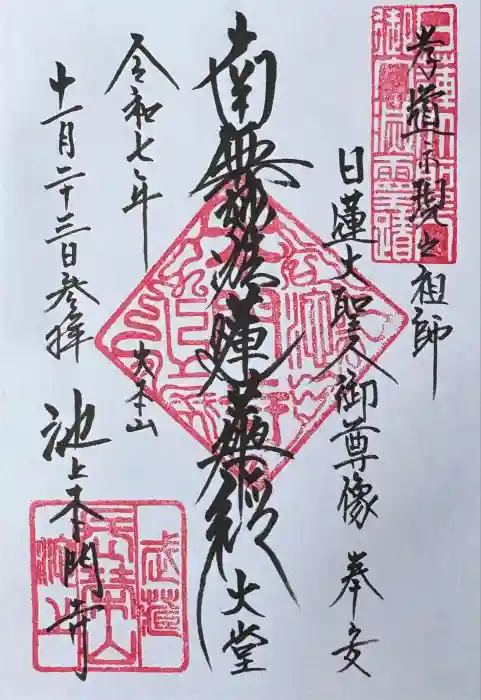 孝道示現之祖師
日蓮大聖人御尊像 奉安
南無妙法蓮華経 大堂
令和七年
大本山
十一月二十三日参拝
池上本門寺